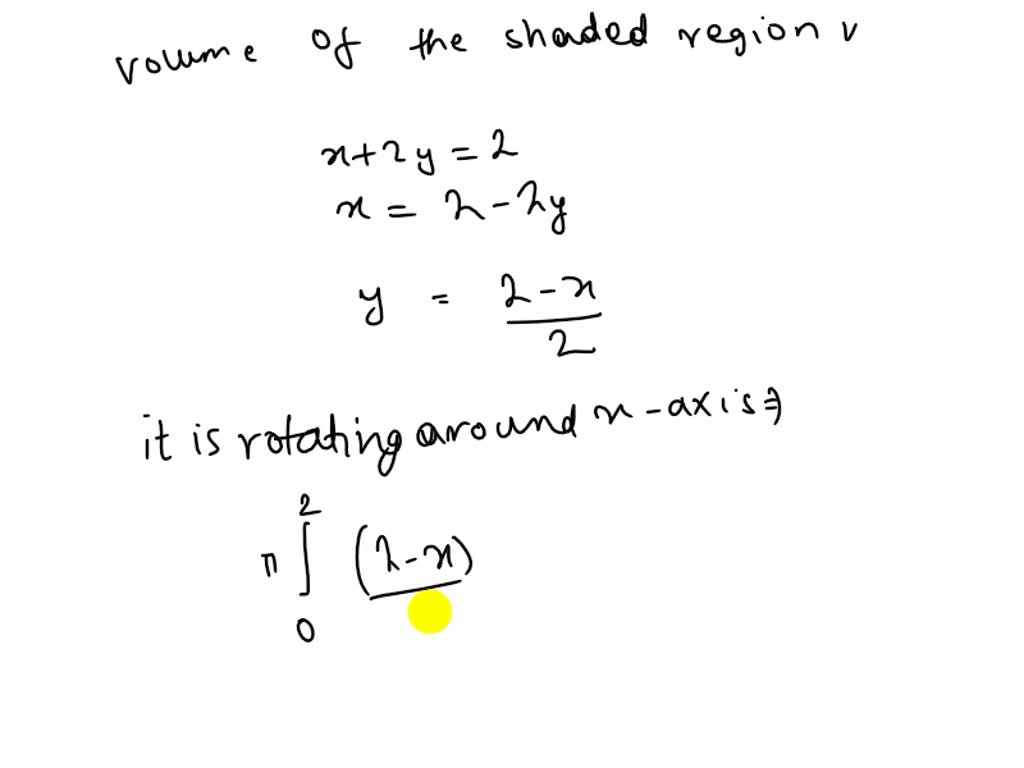 volume of the shaded region v
x+2y=2
x = 2-2y
y = 2-x
2
it is rotating around x-axis⇒
2
π ∫ (2-x)
0